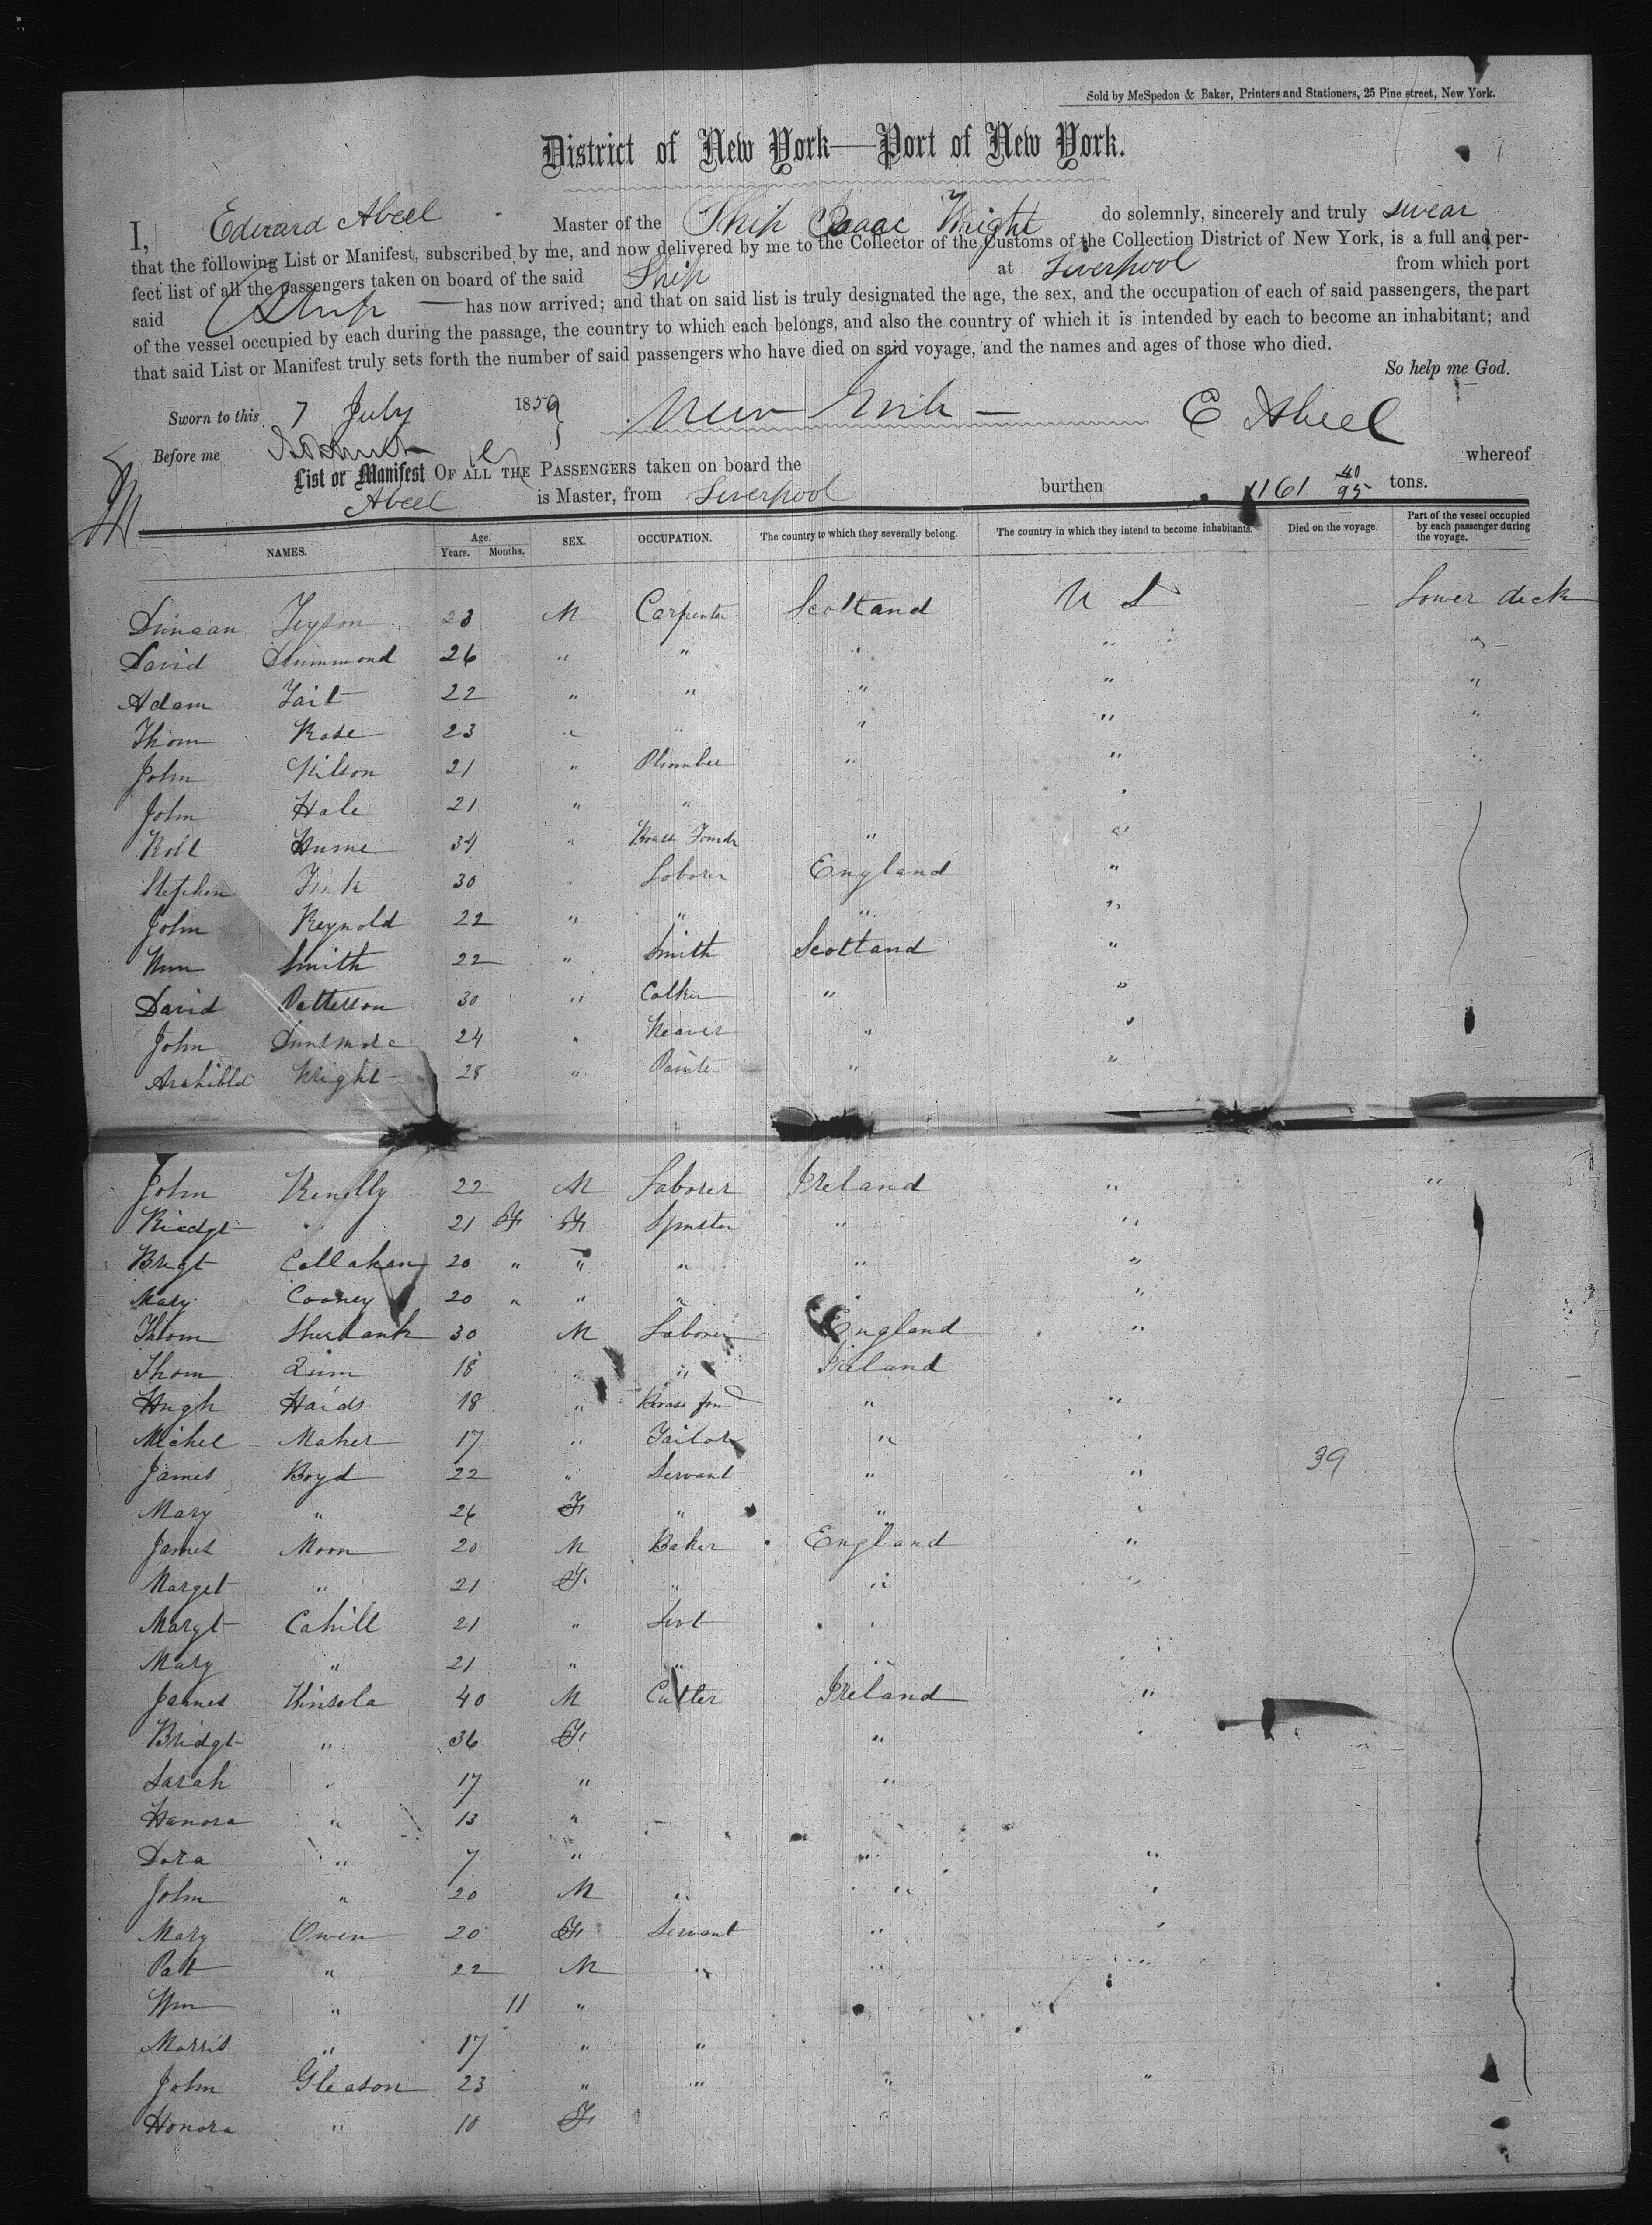 Sold by McSpedon & Baker, Printers and Stationers, 25 Pine street, New York.
District of New York—Port of New York.
I, Edward Abeel Master of the Ship Isaac Wright do solemnly, sincerely and truly swear
that the following List or Manifest, subscribed by me, and now delivered by me to the Collector of the Customs of the Collection District of New York, is a full and per-
fect list of all the passengers taken on board of the said Ship at Liverpool from which port
said Ship has now arrived; and that on said list is truly designated the age, the sex, and the occupation of each of said passengers, the part
of the vessel occupied by each during the passage, the country to which each belongs, and also the country of which it is intended by each to become an inhabitant; and
that said List or Manifest truly sets forth the number of said passengers who have died on said voyage, and the names and ages of those who died.
So help me God.
Sworn to this 7 July 1859 } New York E Abeel
Before me
List or Manifest OF ALL THE PASSENGERS taken on board the whereof
Abeel is Master, from Liverpool burthen 1161 40/95 tons.
NAMES. Age. Years. Months. SEX. OCCUPATION. The country to which they severally belong. The country in which they intend to become inhabitants. Died on the voyage. Part of the vessel occupied by each passenger during the voyage.
Duncan 23 M Carpenter Scotland U S Lower deck
David Drummond 26 " " " " "
Adam Tait 22 " " " " "
Thom Rose 23 " " " " "
John Wilson 21 " Plumber " "
John Hale 21 " " "
Robt Hume 34 " Brass Foundr " "
Stephen 30 " Laborer England "
John Reynold 22 " " " "
Wm Smith 22 " Smith Scotland "
David Patterson 30 " Calker " "
John 24 " Weaver " "
Archibld Wright 28 " Painter " "
John Kenelly 22 M Laborer Ireland " "
" 21 F F Spinster " "
Brigt Callahan 20 " " " " "
Mary Cooney 20 " " " "
Thom Sherbank 30 M Laborer England "
Thom Quin 18 " " Ireland
Hugh Haids 18 " Brass foundr " "
Michel Maher 17 " Tailor " "
James Boyd 22 " Servant " " 39
Mary " 26 F " " "
James Moon 20 M Baker England "
Marget " 21 F " " "
Margt Cahill 21 " Servt "
Mary " 21 " " " "
James Kinsela 40 M Cutter Ireland "
Bridgt " 36 F " "
Sarah " 17 " "
Hanora " 13 "
Dora " 7 " " "
John " 20 M " " "
Mary Owen 20 F Servant " "
Pat " 22 M " " "
Wm " 11 "
Morris " 17 " "
John Gleason 23 " " " "
Honora " 10 F "